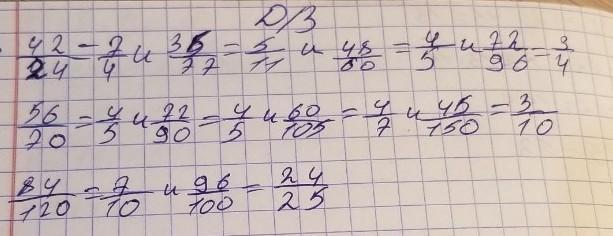 Д/З
42/24 = 7/4 и 35/77 = 5/11 и 48/60 = 4/5 и 72/96 = 3/4
56/70 = 4/5 и 72/90 = 4/5 и 60/105 = 4/7 и 45/150 = 3/10
84/120 = 7/10 и 96/100 = 24/25